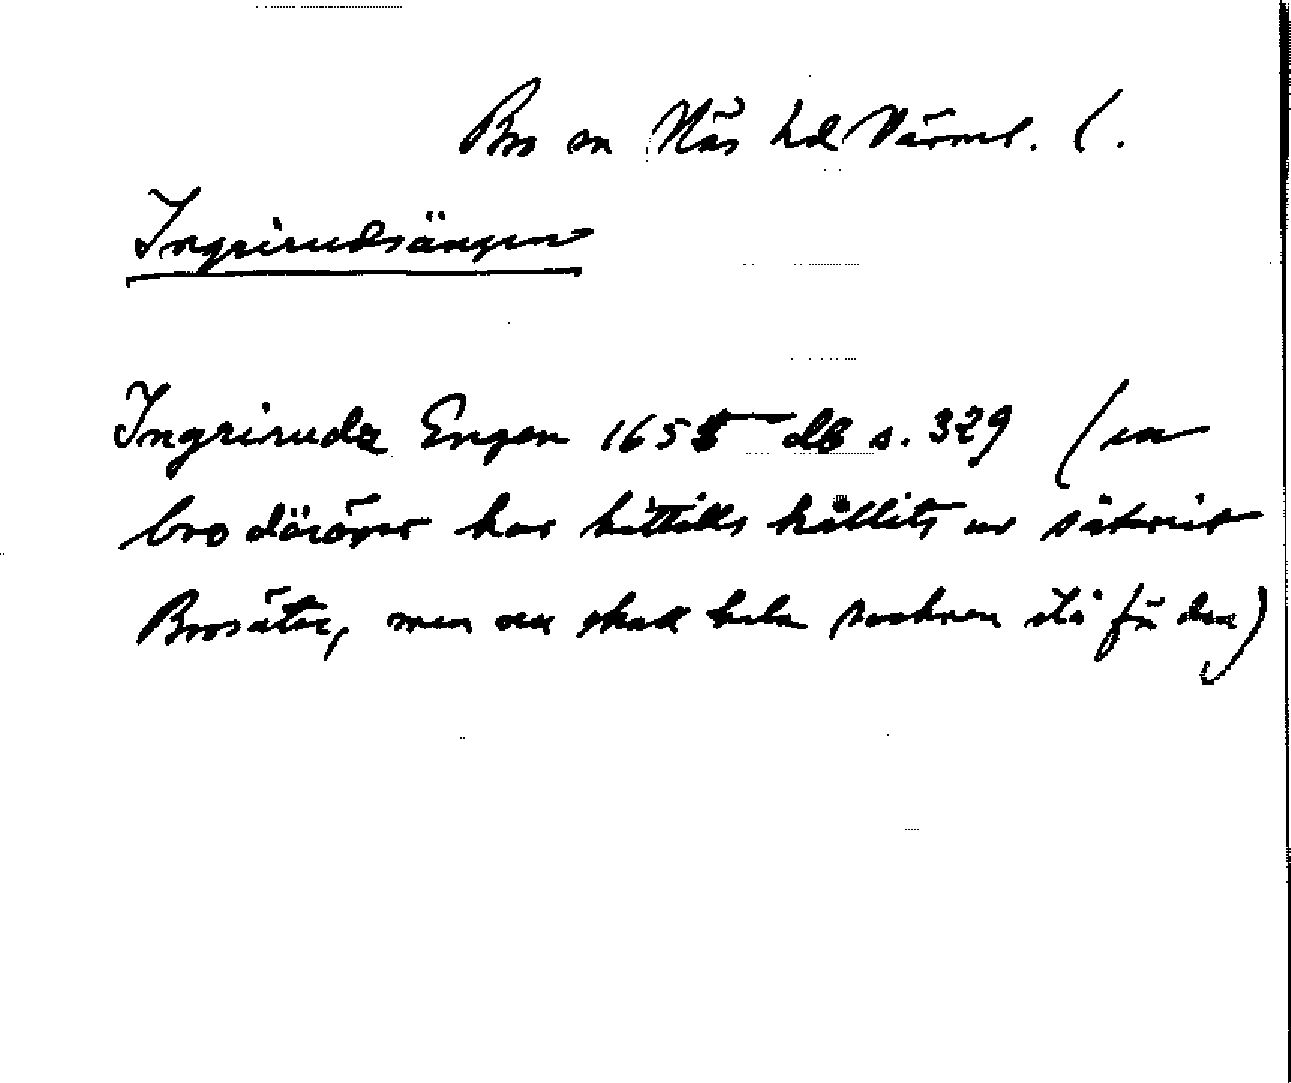 Bro sn Näs hd Värml. l.
Ingrirudsängen
Ingrirudz Engen 1655 db s. 329 (en
bro däröver har hittills hållits av säteriet
Brosäter, men nu skall hela socknen stå för den)